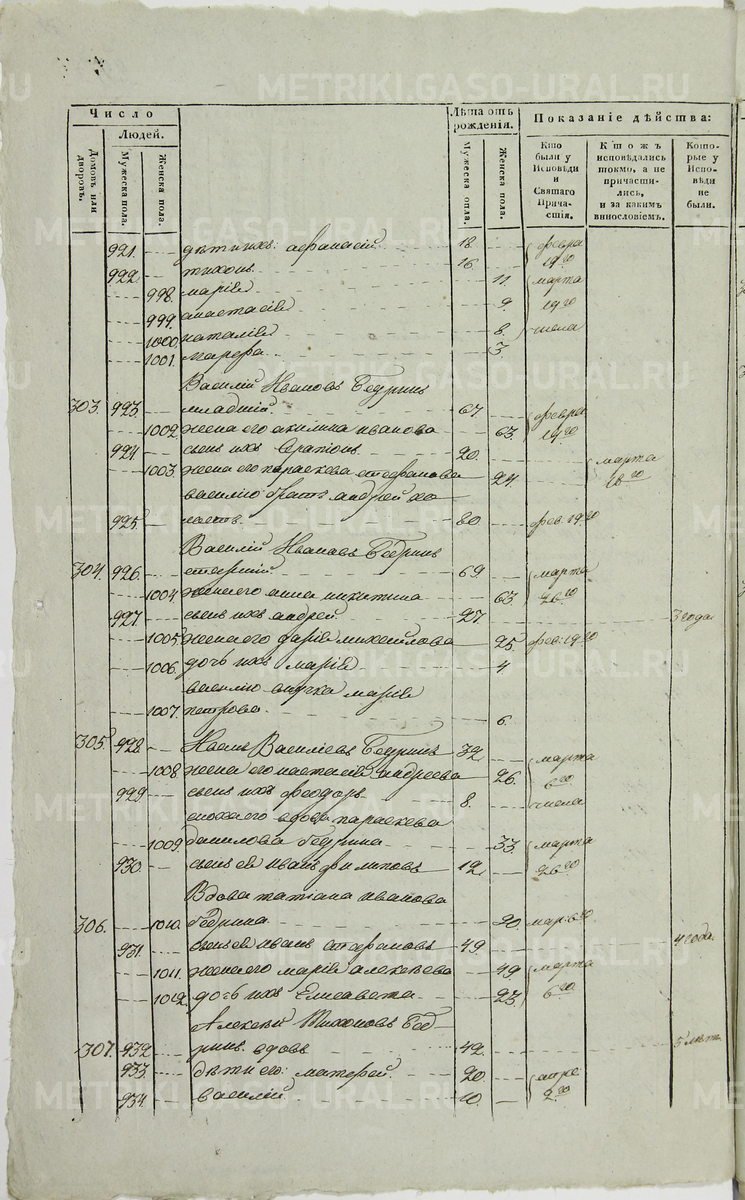 METRIKI.GASO-URAL.RU
Число
Лѣта отъ рожденія.
Показаніе дѣйства:
Людей.
Домовъ или дворовъ.
Мужеска пола.
Женска пола.
Мужеска пола.
Женска пола.
Кто были у Исповѣди и Святаго Причастія.
Ктожъ исповѣдались токмо, а не причастились, и за какимъ винословіемъ.
Которые у Исповѣди не были.
921. дѣти ихъ: афанасій 18. февра
922. тихонъ 16. 19го
998. марія 11. марта
999. анастасія 9. 19го
1000. наталія 8. числа
1001. марѳа 3
Василій Ивановъ Бедринъ
303. 923. младшій 67. февра
1002. жена его акилина иванова 63. 19го
924. сынъ ихъ Серапіонъ 20.
1003. жена его параскева стефанова 24. марта 18го
василію братъ андрей хо
925. ластъ 80 фев. 19го
Василій Ивановъ Бедринъ
304. 926. старшій 69. марта
1004. жена его анна никитина 63 26го
927. сынъ ихъ андрей 27 3 года
1005. жена его дарія михайлова 25. фев. 19го
1006. дочь ихъ марія 4
василію внучка марія
1007. петрова 6.
305. 928. Иванъ Василіевъ Бедринъ 32 марта
1008. жена его настасія андреева 26. 6го
929. сынъ ихъ феодоръ 8. числа
сноха его вдова параскева
1009. данилова бедрина 33 марта
930 сынъ ея иванъ филиповъ 12 26го
Вдова татіана иванова
306. 1010. бедрина 90. мар. 6го
931. сынъ ея иванъ стефановъ 49. 4 года
1011. жена его марія алексѣева 49 марта
1012. дочь ихъ Елисавета 23. 6го
Алексѣй Тихоновъ Бед
307. 932. ринъ вдовъ 42. 5 лѣтъ
933. дѣти его: матфей 20. апре
934. василій 10. 2го